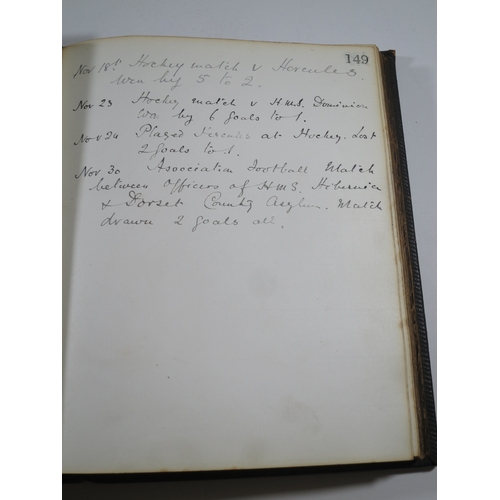 149
Nov 18th Hockey match v Hercules.
Won by 5 to 2.
Nov 23 Hockey match v H.M.S. Dominion
Won by 6 goals to 1.
Nov 24 Played Hercules at Hockey. Lost
2 goals to 1.
Nov 30 Association Football Match
between Officers of H.M.S. Hibernia
& Dorset County Asylum. Match
drawn 2 goals all.